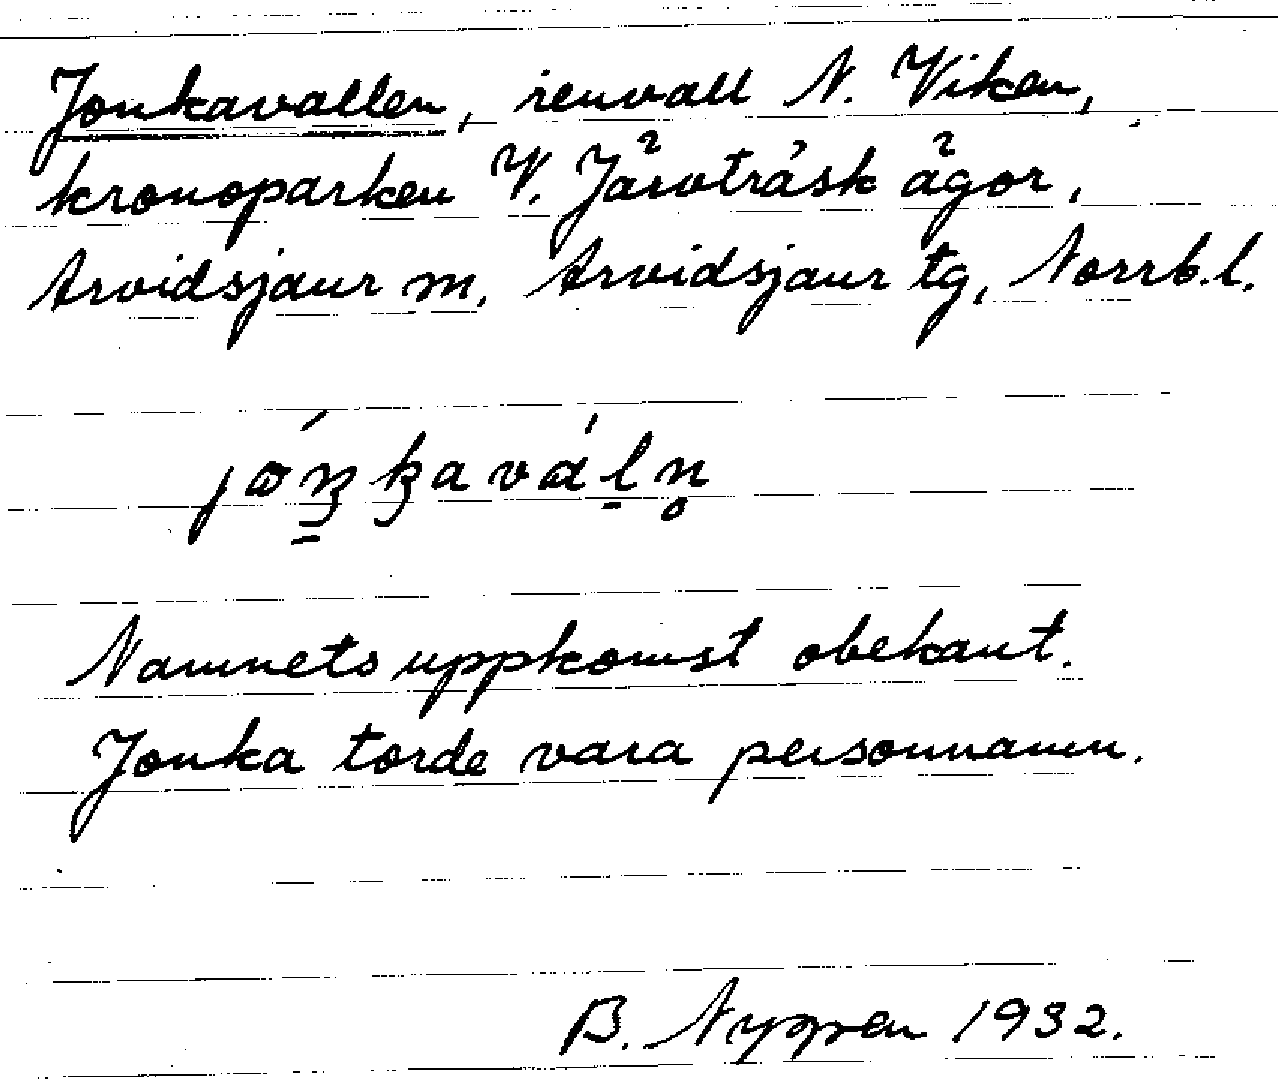 Jonkavallen, renvall N. Viken,
kronoparken V. Järvträsk ägor,
Arvidsjaur m. Arvidsjaur tg, Norrb.l.
Namnets uppkomst obekant.
Jonka torde vara personnamn.
B. Nygren 1932.